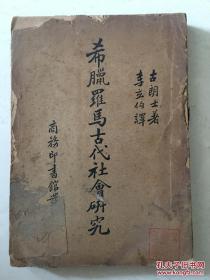 古朗士著
李玄伯譯
希臘羅馬古代社會研究
商務印書館